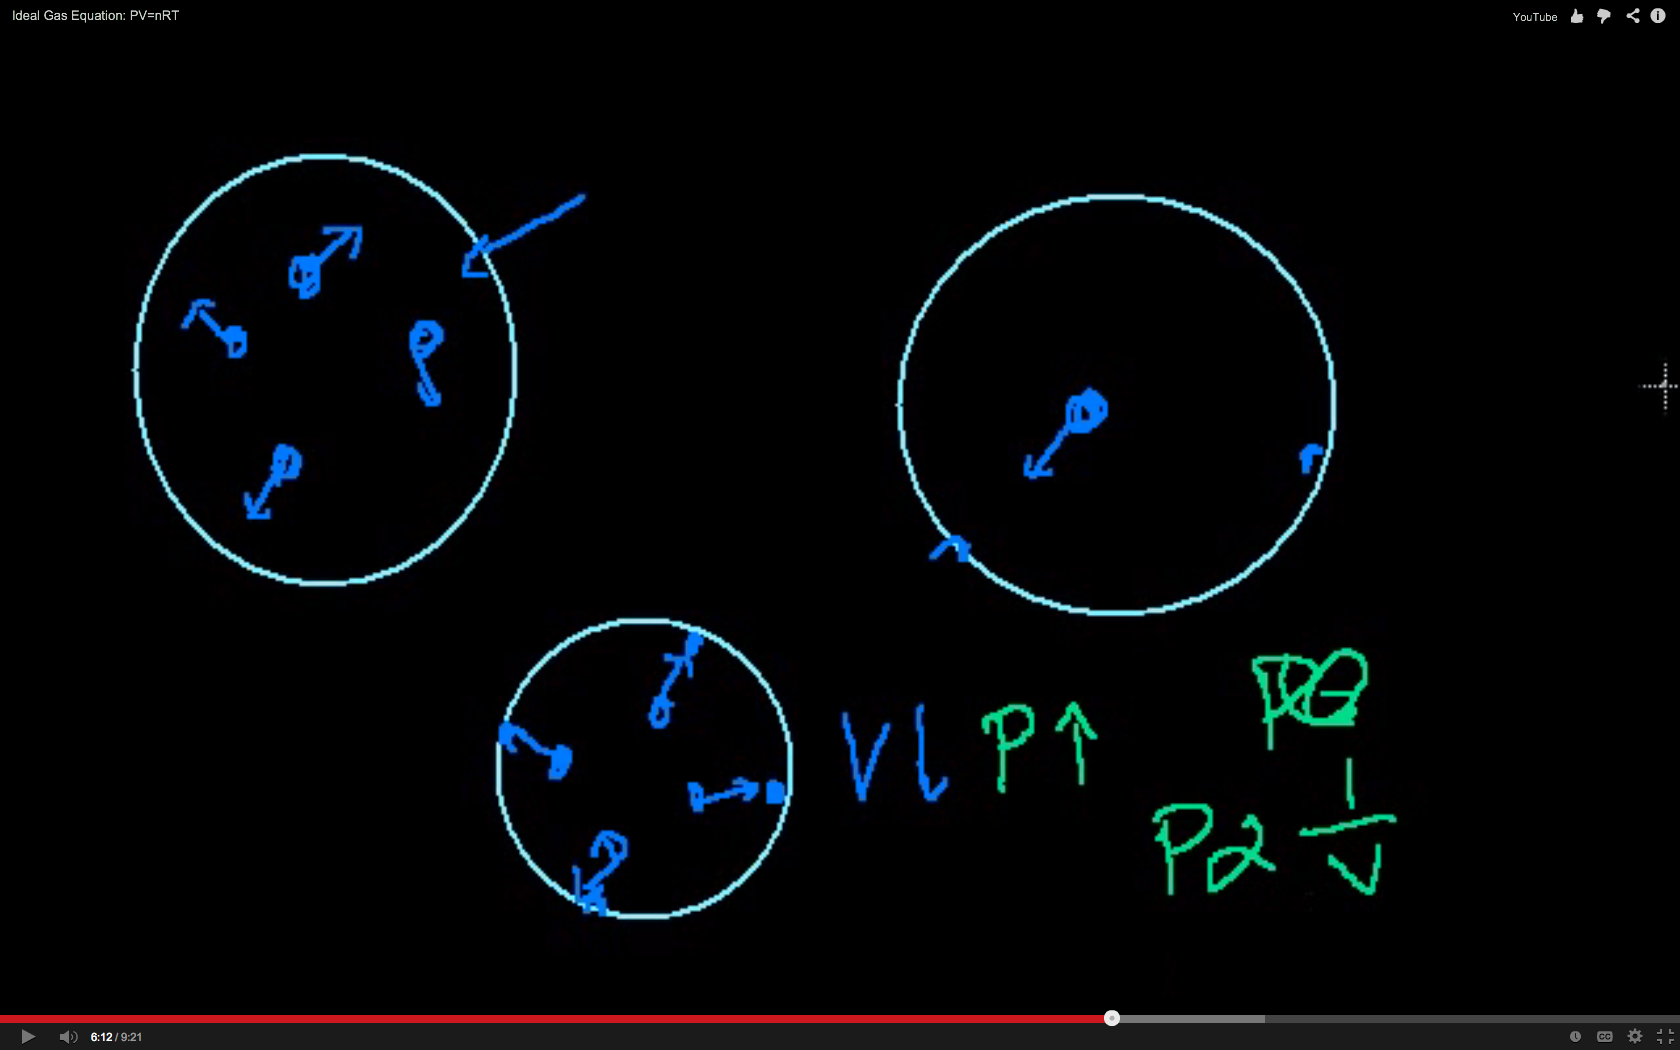 Ideal Gas Equation: PV=nRT
YouTube
V↓ P↑
P α 1/V
6:12 / 9:21
CC